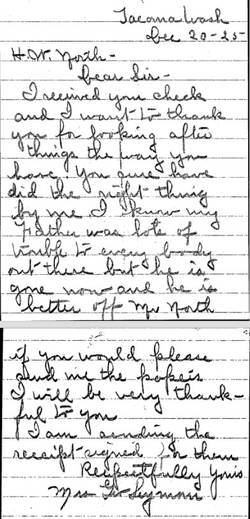 Tacoma Wash
Dec 20-25
H.W. North-
Dear Sir-
I received you check
and I want to thank
you for looking after
things the way you
have. You sure have
did the right thing
by me I know my
Father was lots of
trouble to every body
out there but he is
gone now and he is
better off Mr North
if you would please
send me the papers
I will be very thank-
ful to you
I am sending the
receipt signed for them
Respectfully Yours
Mrs Seymour